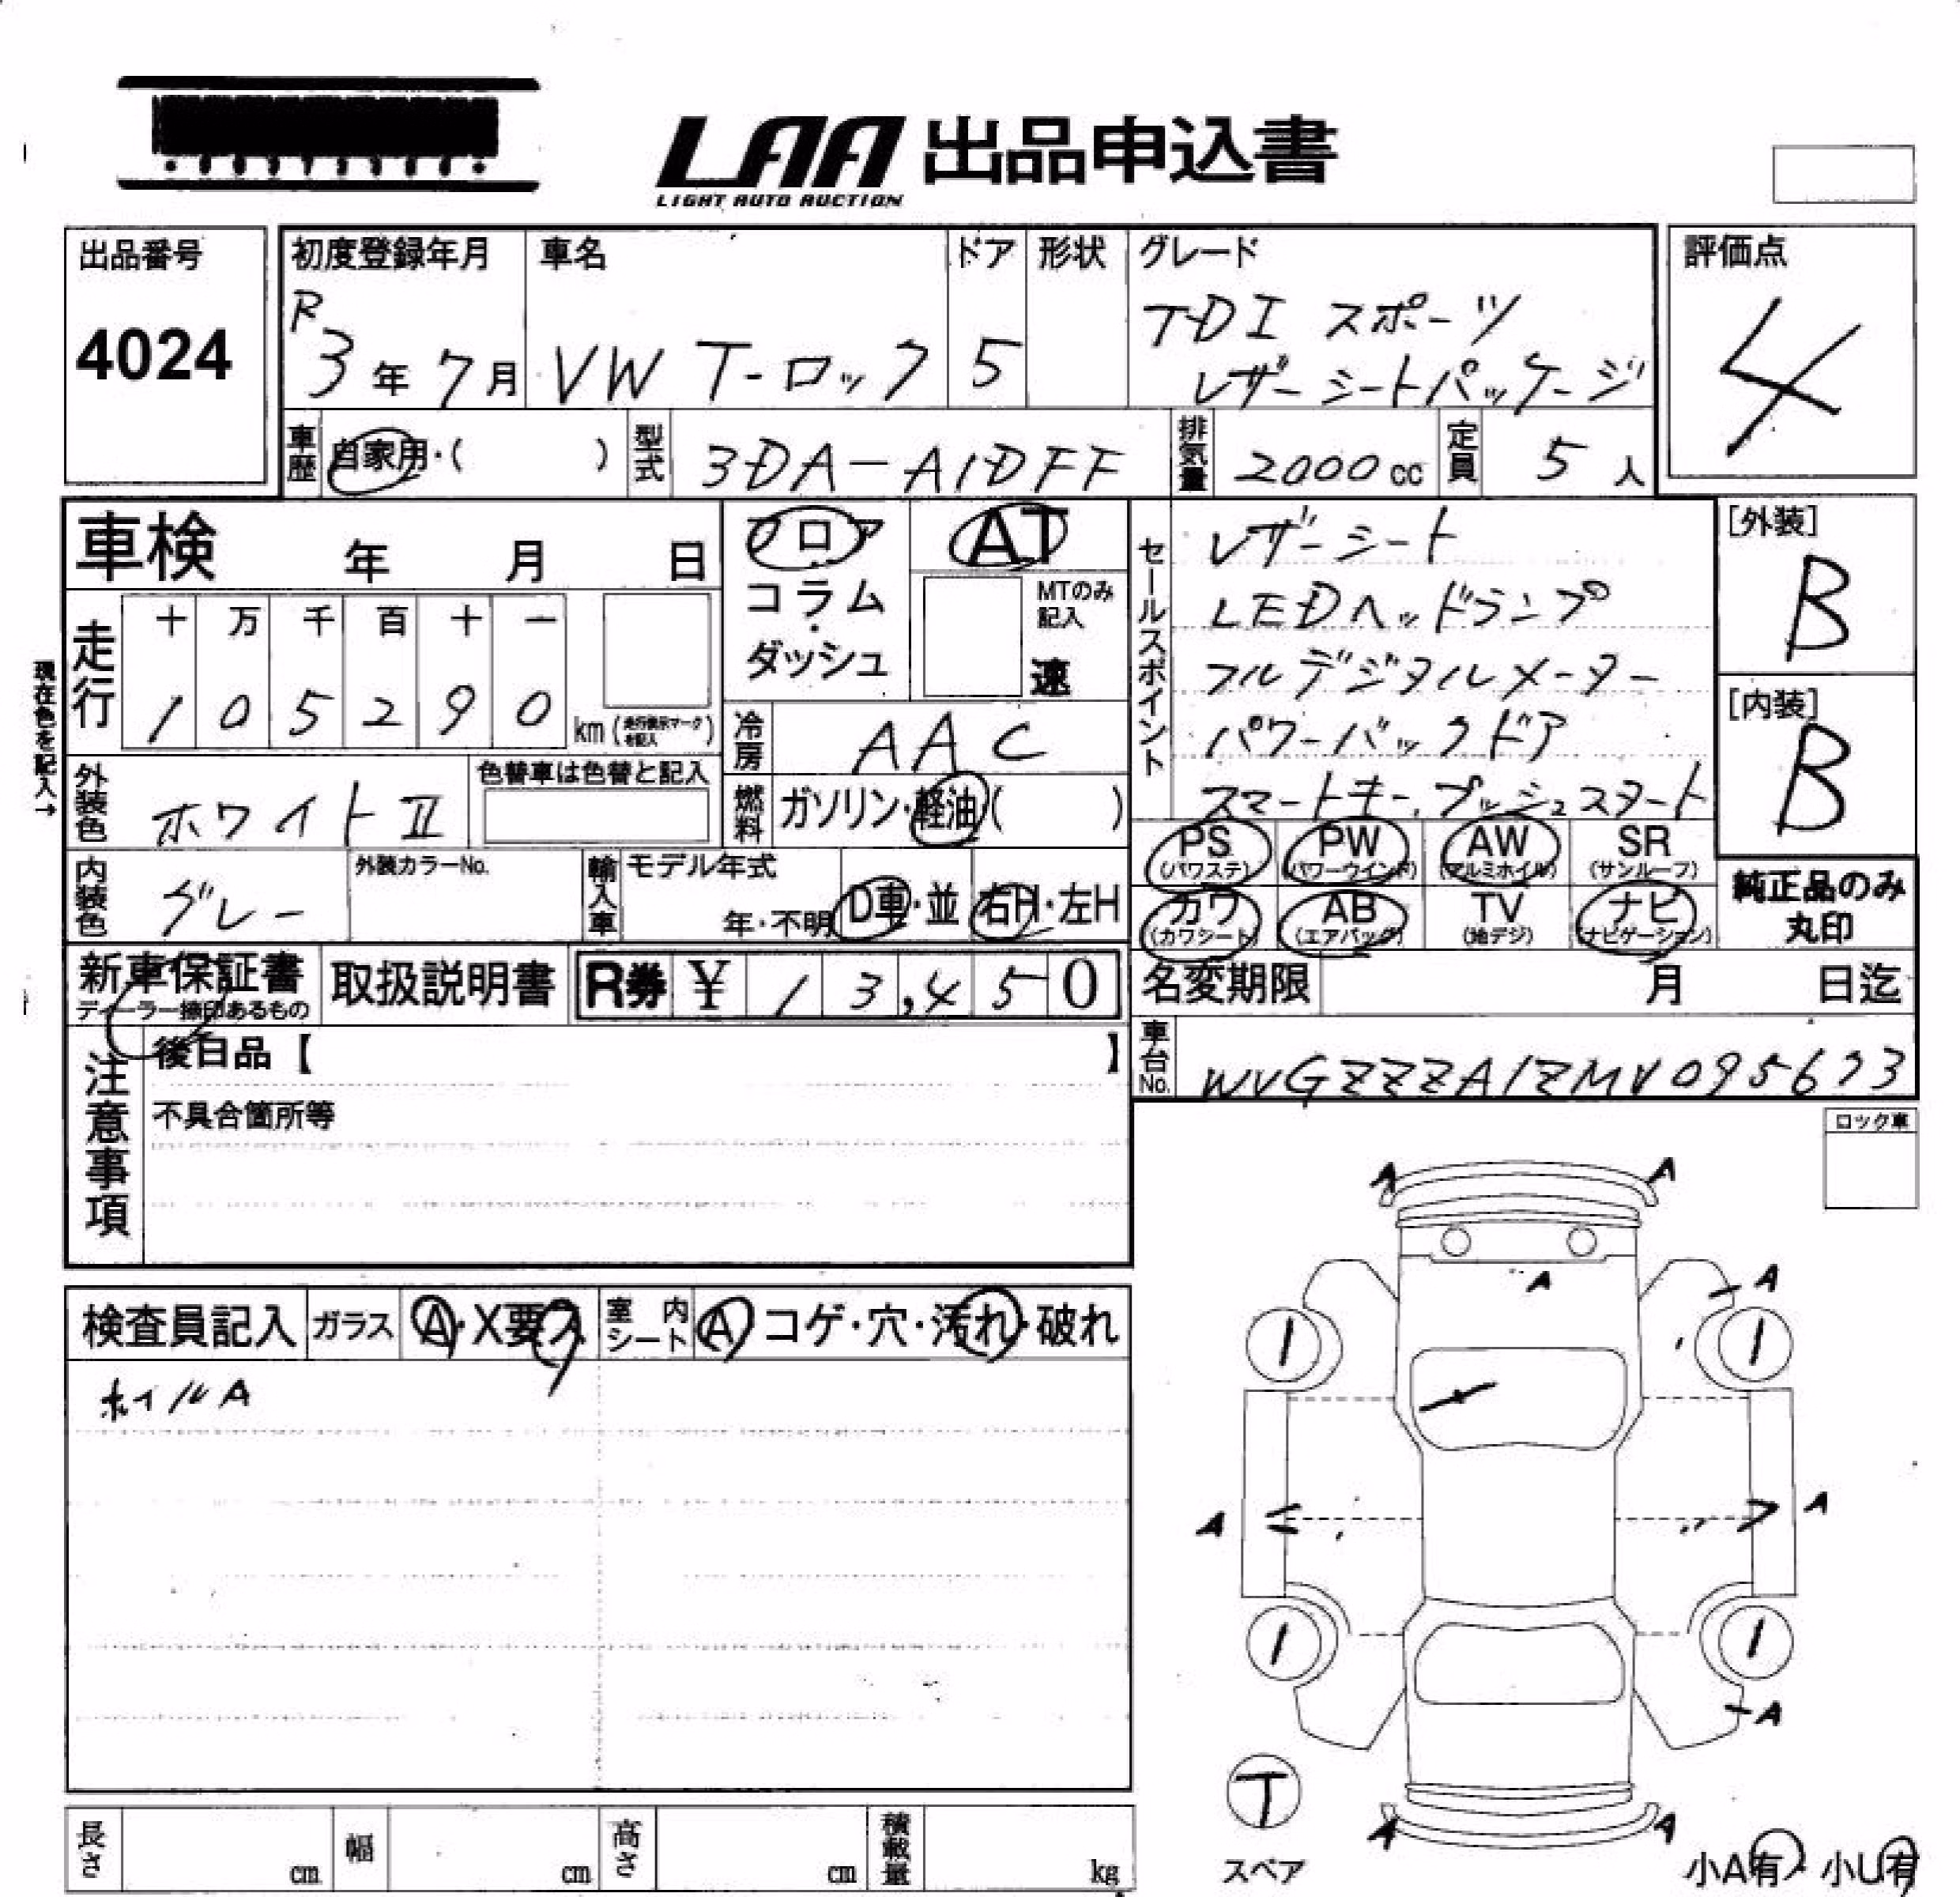 LAA 出品申込書
LIGHT AUTO AUCTION
出品番号
4024
初度登録年月
R
3年7月
車名
VW T-ロック
ドア
5
形状
グレード
TDI スポーツ
レザーシートパッケージ
評価点
4
車歴 自家用・( )
型式 3DA-A1DFF
排気量 2000cc
定員 5人
車検 年 月 日
走行
十 万 千 百 十 一
1 0 5 2 9 0 km (走行表示マークを記入)
現在色を記入→
フロア
コラム・ダッシュ
AT
MTのみ記入
速
冷房 AAC
外装色 ホワイトⅡ
色替車は色替と記入
燃料 ガソリン・軽油( )
内装色 グレー
外装カラーNo.
輸入車
モデル年式
年・不明
D車・並
右H・左H
セールスポイント
レザーシート
LEDヘッドランプ
フルデジタルメーター
パワーバックドア
スマートキー、プッシュスタート
[外装]
B
[内装]
B
PS (パワステ) PW (パワーウインド) AW (アルミホイル) SR (サンルーフ)
カワ (カワシート) AB (エアバッグ) TV (地デジ) ナビ (ナビゲーション)
純正品のみ
丸印
新車保証書
ディーラー捺印あるもの
取扱説明書
R券 ¥ 1 3,4 5 0
名変期限 月 日迄
車台No. WVGZZZA1ZMV095673
注意事項
後日品【 】
不具合箇所等
ロック車
検査員記入
ガラス A・X要ス
室内シート A コゲ・穴・汚れ・破れ
ホイルA
A A
A
A
1 1
A A
1 1
A
T
スペア
A A
小A有・小U有
長さ cm
幅 cm
高さ cm
積載量 kg